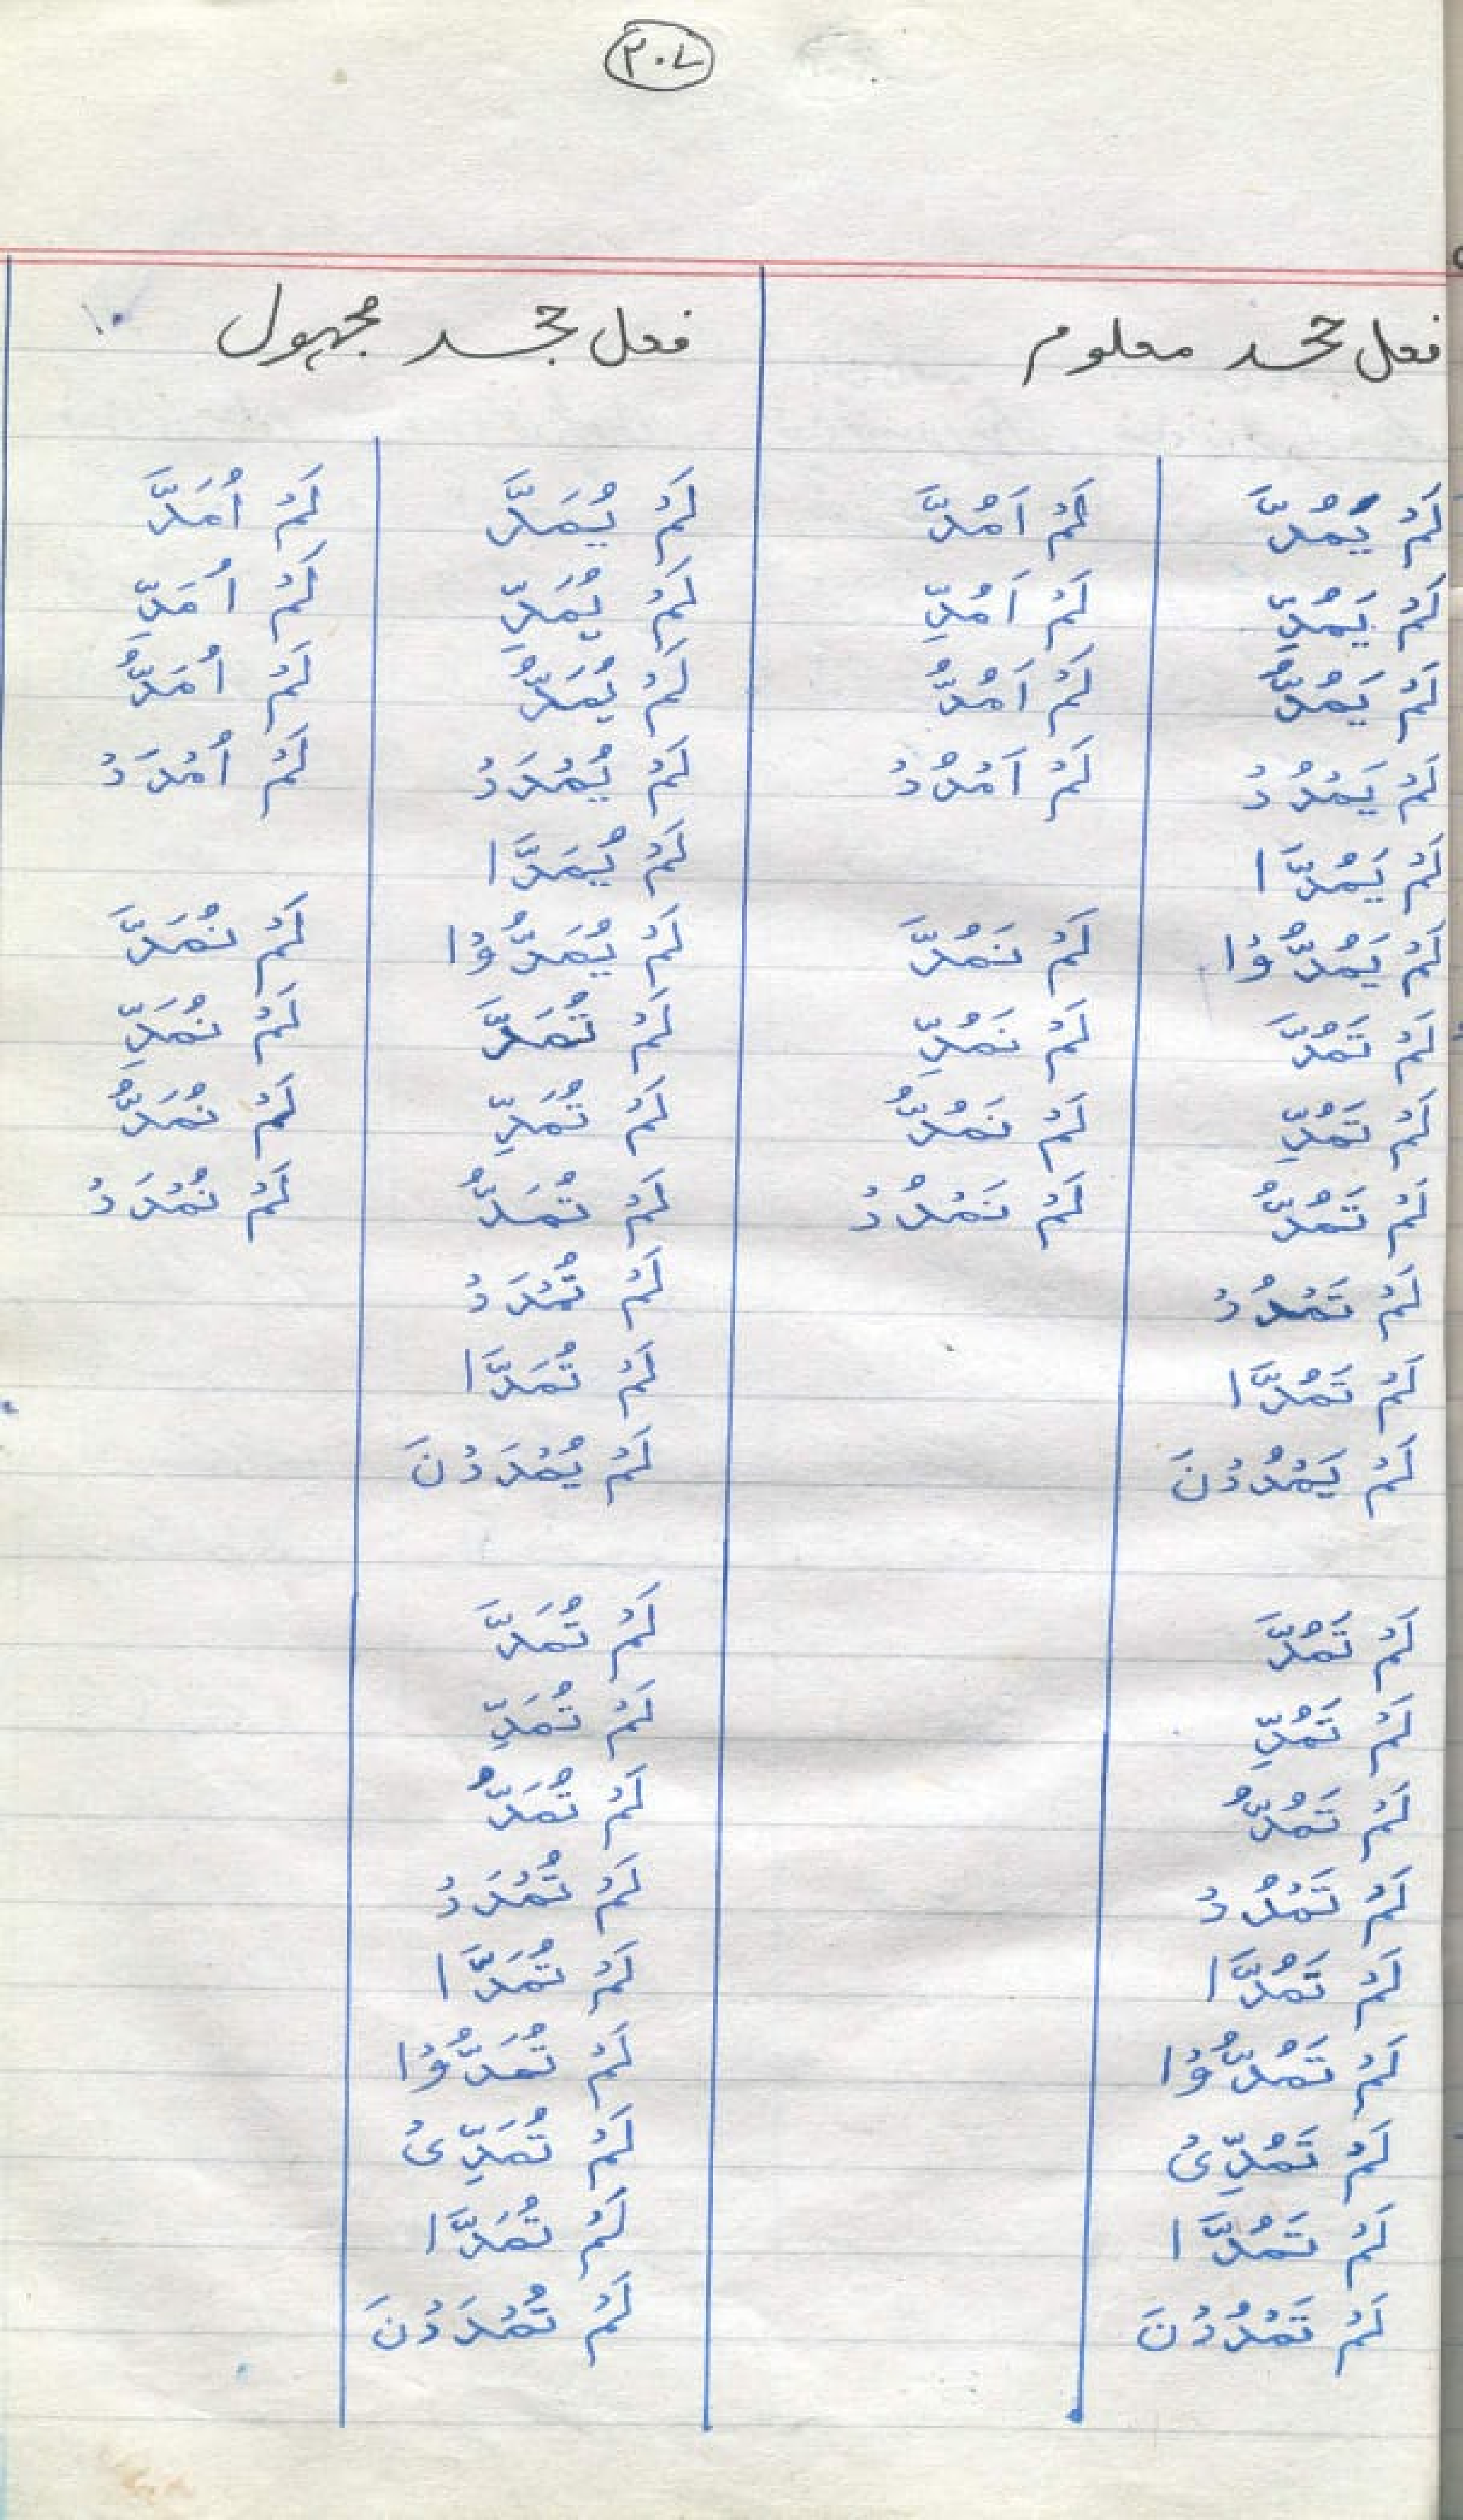 ٢٠٧
فعل جحد معلوم
لَمْ يَمُدَّ
لَمْ يَمُدِّ
لَمْ يَمُدُّ
لَمْ يَمْدُدْ
لَمْ يَمُدَّا
لَمْ يَمُدُّوْا
لَمْ تَمُدَّ
لَمْ تَمُدِّ
لَمْ تَمُدُّ
لَمْ تَمْدُدْ
لَمْ تَمُدَّا
لَمْ يَمْدُدْنَ
لَمْ تَمُدَّ
لَمْ تَمُدِّ
لَمْ تَمُدُّ
لَمْ تَمْدُدْ
لَمْ تَمُدَّا
لَمْ تَمُدُّوْا
لَمْ تَمُدِّىْ
لَمْ تَمُدَّا
لَمْ تَمْدُدْنَ
لَمْ اَمُدَّ
لَمْ اَمُدِّ
لَمْ اَمُدُّ
لَمْ اَمْدُدْ
لَمْ نَمُدَّ
لَمْ نَمُدِّ
لَمْ نَمُدُّ
لَمْ نَمْدُدْ
فعل جحد مجهول
لَمْ يُمَدَّ
لَمْ يُمَدِّ
لَمْ يُمَدُّ
لَمْ يُمْدَدْ
لَمْ يُمَدَّا
لَمْ يُمَدُّوْا
لَمْ تُمَدَّ
لَمْ تُمَدِّ
لَمْ تُمَدُّ
لَمْ تُمْدَدْ
لَمْ تُمَدَّا
لَمْ يُمْدَدْنَ
لَمْ تُمَدَّ
لَمْ تُمَدِّ
لَمْ تُمَدُّ
لَمْ تُمْدَدْ
لَمْ تُمَدَّا
لَمْ تُمَدُّوْا
لَمْ تُمَدِّىْ
لَمْ تُمَدَّا
لَمْ تُمْدَدْنَ
لَمْ اُمَدَّ
لَمْ اُمَدِّ
لَمْ اُمَدُّ
لَمْ اُمْدَدْ
لَمْ نُمَدَّ
لَمْ نُمَدِّ
لَمْ نُمَدُّ
لَمْ نُمْدَدْ